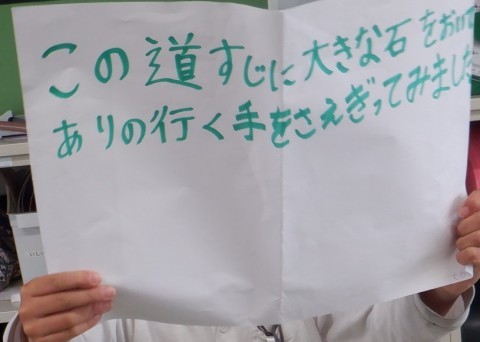 この道すじに大きな石をおいて
ありの行く手をさえぎってみました